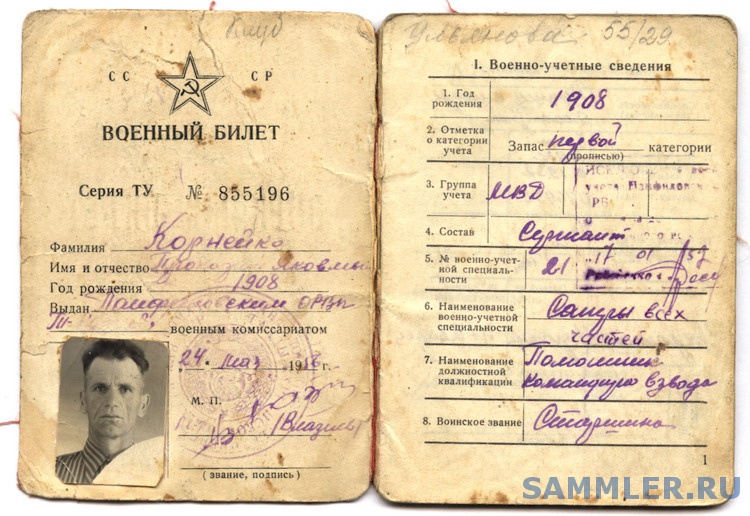 Клуб
СС СР
ВОЕННЫЙ БИЛЕТ
Серия ТУ № 855196
Фамилия Корнейко
Имя и отчество Яковлев
Год рождения 1908
Выдан
военным комиссариатом
"24" мая 1956
М. П.
(звание, подпись)
Ульянова 55/29
I. Военно-учетные сведения
1. Год рождения
1908
2. Отметка о категории учета
Запас первой категории
(прописью)
3. Группа учета
МВД
4. Состав
Сержант
17 01 57
5. № военно-учетной специальности
21
6. Наименование военно-учетной специальности
Сапёры всех частей
7. Наименование должностной квалификации
Помощник командира взвода
8. Воинское звание
Старшина
1
SAMMLER.RU